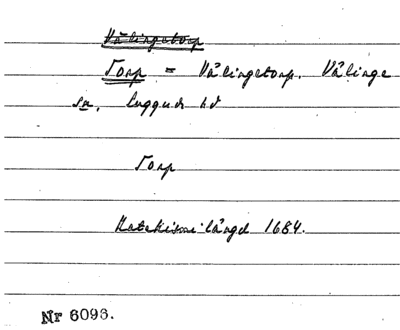 Vålingetorp
Torp = Vålingetorp. Vålinge
sn, Luggude hd
Torp
Katekismilängd 1684.
Nr 6096.